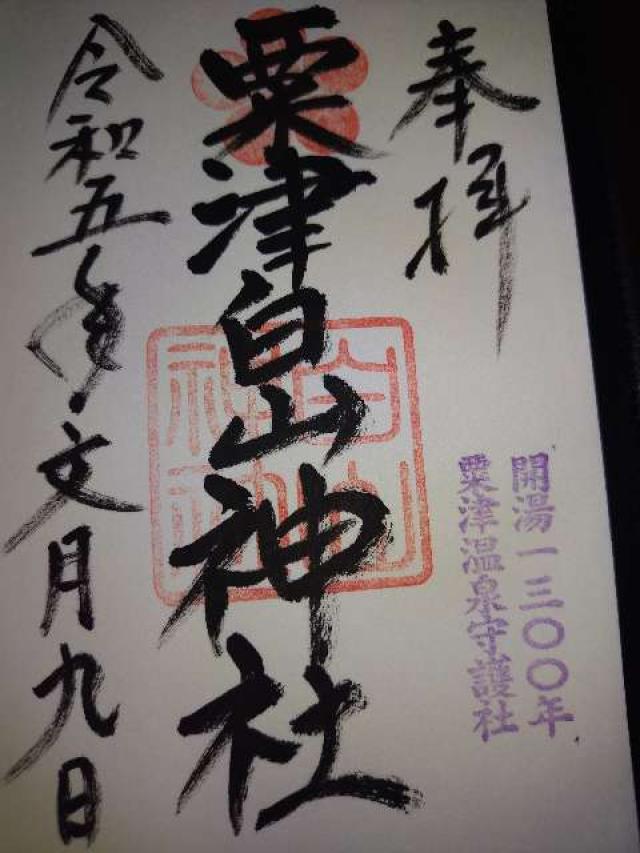 奉拝
開湯一三〇〇年
粟津温泉守護社
粟津白山神社
白山
神社
令和五年文月九日